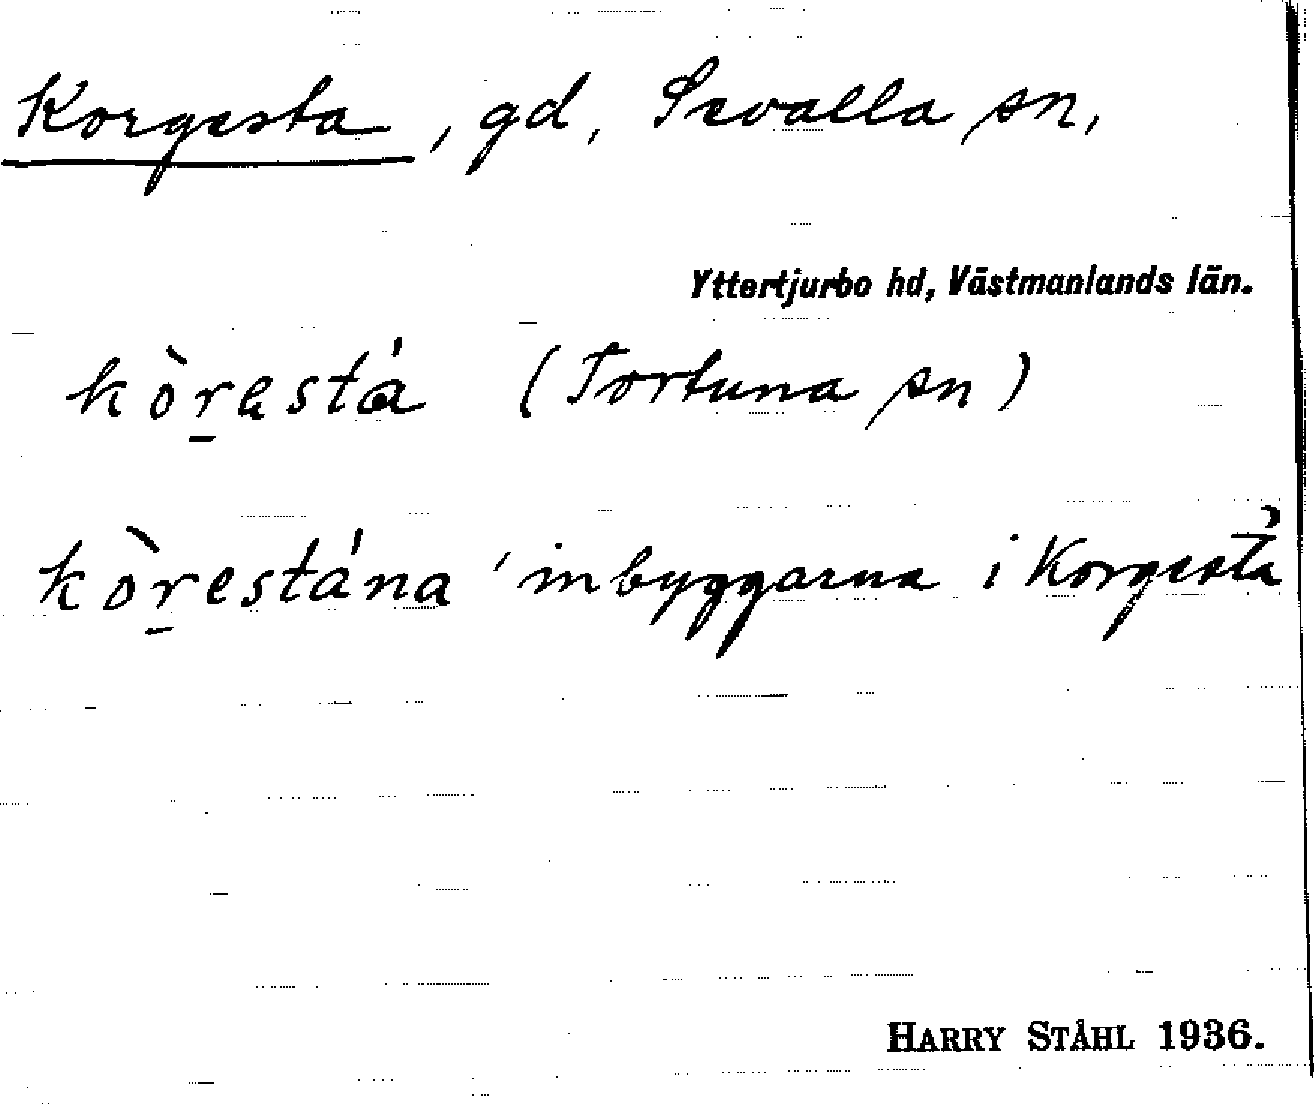 Korgesta, gd, Sevalla sn,
Yttertjurbo hd, Västmanlands län.
kòr̠está (Tortuna sn)
kòr̠estána 'inbyggarna i Korgesta'
HARRY STÅHL 1936.